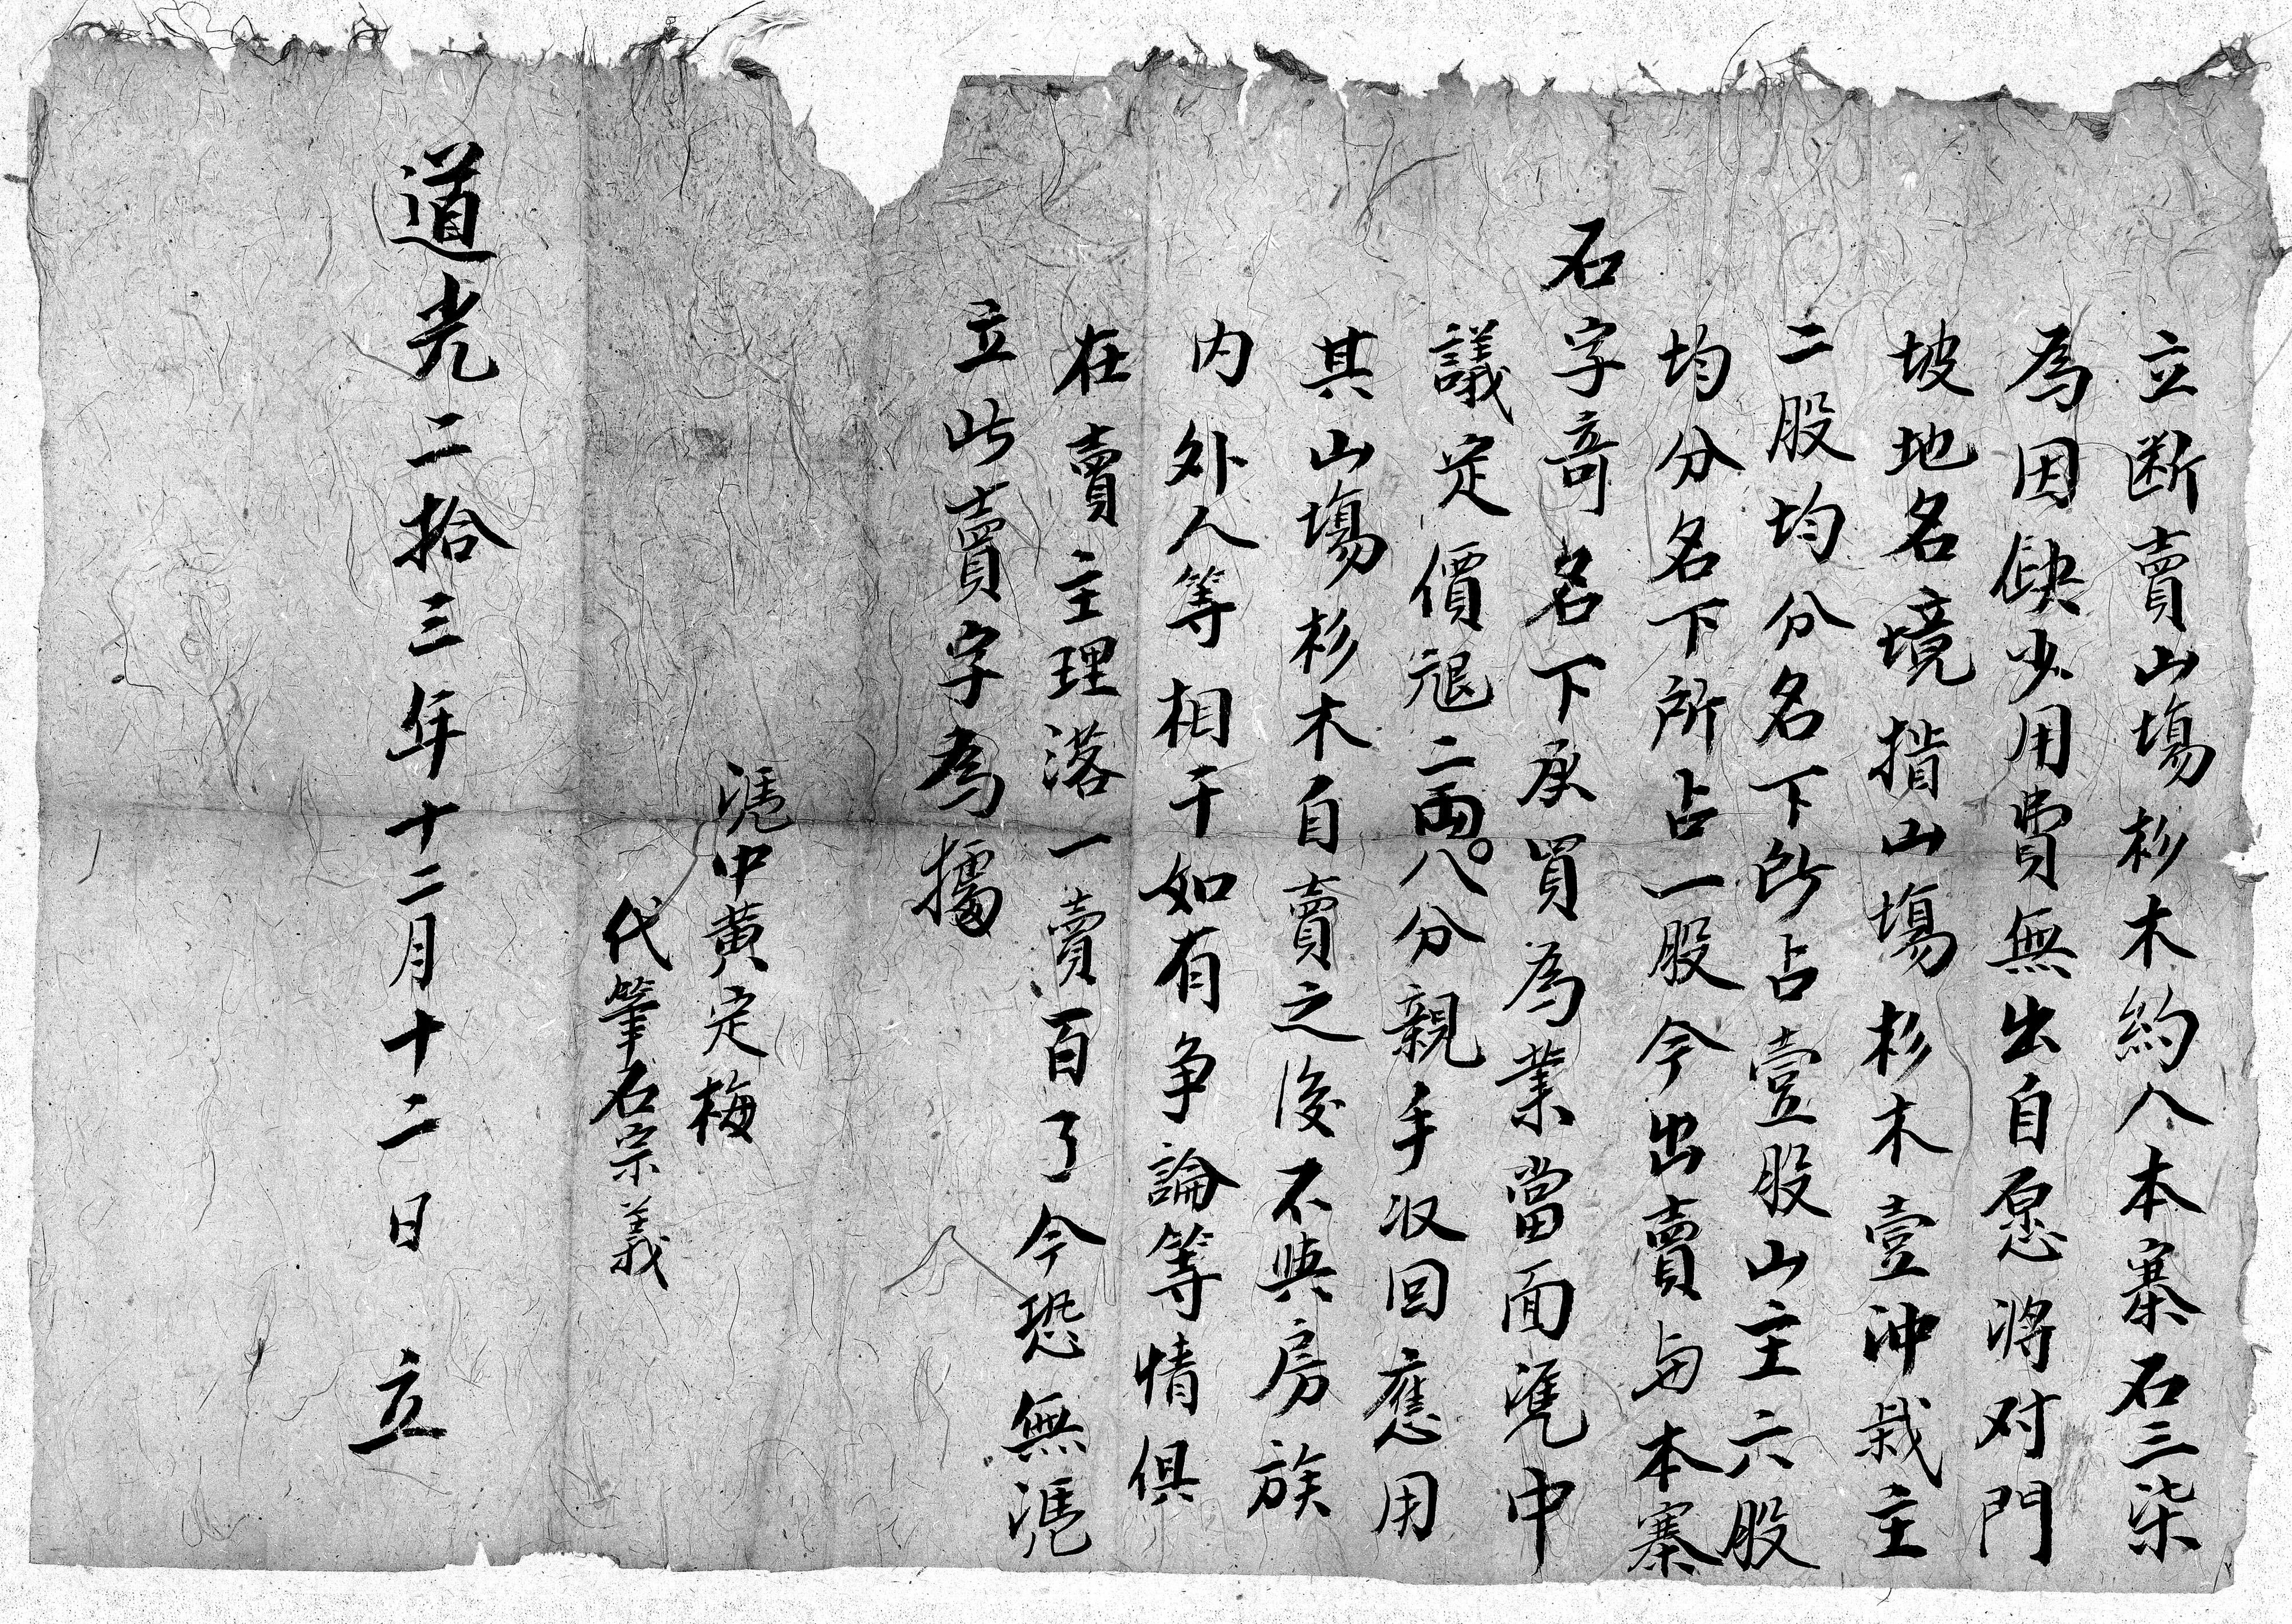 立断賣山塲杉木約人本寨石三柒
為因缺少用費無出自愿將对門
坡地名境揩山塲杉木壹冲栽主
二股均分名下所占壹股山主六股
均分名下所占一股今出賣与本寨
石字奇名下承買為業當面凴中
議定價艮二両八分親手収回應用
其山塲杉木自賣之後不與房族
内外人等相干如有争論等情俱
在賣主理落一賣百了今恐無凴
立此賣字為據
凴中黄定梅
代筆石宗義
道光二拾三年十二月十二日 立